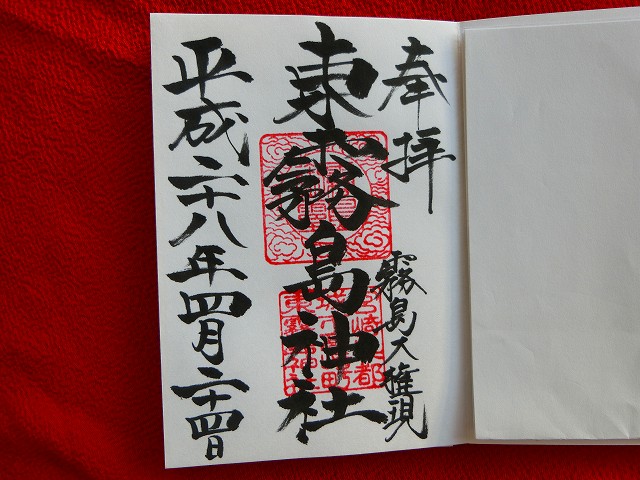 奉拝
霧島大権現
東霧島神社
平成二十八年四月二十四日